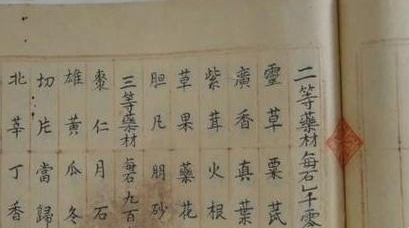 二等藥材每石一千零
靈草粟芪
廣香真葉
紫茸火根
草果藥花
胆凡朋砂
三等藥材每石九百
棗仁月石
雄黃瓜冬
切片當歸
北莘丁香